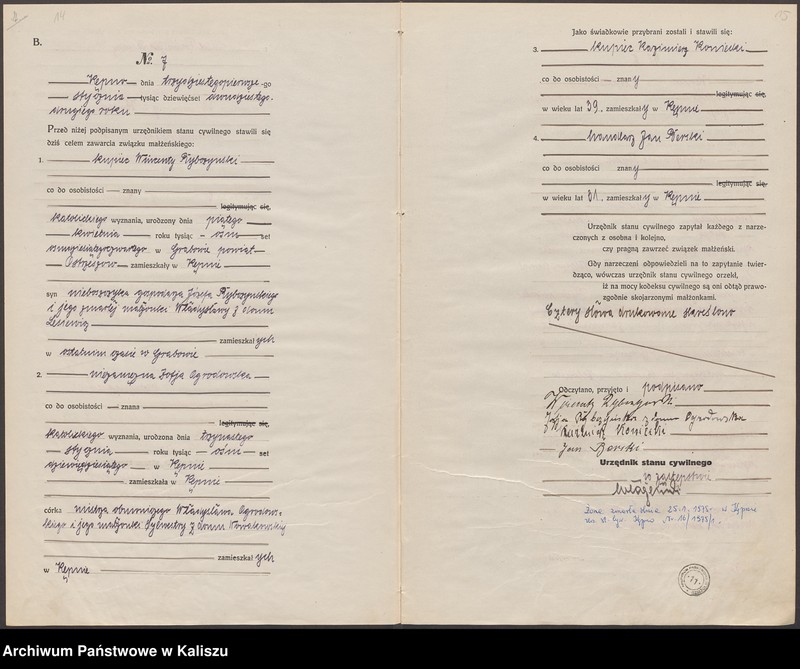 14
B.
№ 7
Kępno dnia trzydziestegopierwszego
stycznia tysiąc dziewięćset dwudziestego-
drugiego roku
Przed niżej podpisanym urzędnikiem stanu cywilnego stawili się
dziś celem zawarcia związku małżeńskiego:
1. kupiec Wincenty Rybczyński
co do osobistości — znany
legitymując się,
katolickiego wyznania, urodzony dnia piątego
kwietnia roku tysiąc ośm set
w Grabowie powiat
Ostrzeszów zamieszkały w Kępnie
syn nieboszczyka gospodarza Józefa Rybczyńskiego
i jego zmarłej małżonki Władysławy z domu
zamieszkałych
w ostatnim czasie w Grabowie
2. niezamężna Zofja Ogrodowska
co do osobistości — znana
legitymując się,
katolickiego wyznania, urodzona dnia trzynastego
stycznia roku tysiąc ośm set
dziewięćdziesiątego w Kępnie
zamieszkała w Kępnie
córka mistrza Władysława Ogrodow-
skiego i jego małżonki z domu Nowakowskiej
zamieszkałych
w Kępnie
Jako świadkowie przybrani zostali i stawili się:
3. kupiec Kazimierz Konielki
co do osobistości — znany
legitymując się,
w wieku lat 39, zamieszkały w Kępnie
4. Jan Derski
co do osobistości znany
legitymując się,
w wieku lat 31, zamieszkały w Kępnie
Urzędnik stanu cywilnego zapytał każdego z narze-
czonych z osobna i kolejno,
czy pragną zawrzeć związek małżeński.
Gdy narzeczeni odpowiedzieli na to zapytanie twier-
dząco, wówczas urzędnik stanu cywilnego orzekł,
iż na mocy kodeksu cywilnego są oni obtąd prawo-
zgodnie skojarzonymi małżonkami.
Cztery słowa drukowane skreślono
Odczytano, przyjęto i podpisano
Wincenty Rybczyński
Zofja Rybczyńska z domu Ogrodowska
Kazimierz Konielki
Jan Derski
Urzędnik stanu cywilnego
w zastępstwie
Żona zmarła dnia 25.1.1975 w Kępnie
Archiwum Państwowe w Kaliszu